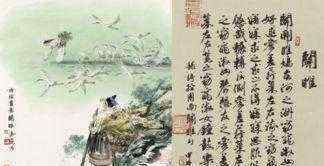 關雎
關關雎鳩在河之洲窈窕淑女君子
好逑參差荇菜左右流之窈窕淑女
寤寐求之求之不得寤寐思服悠哉
悠哉輾轉反側參差荇菜左右采
之窈窕淑女琴瑟友之參差荇
菜左右芼之窈窕淑女鐘鼓樂之
詩經周南關雎